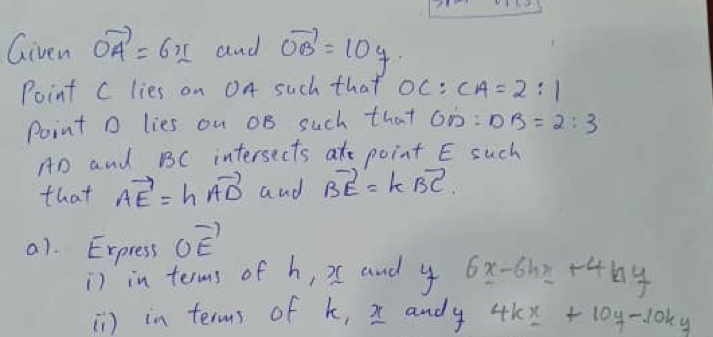 Given OA = 6x and OB = 10y.
Point C lies on OA such that OC : CA = 2 : 1
Point D lies on OB such that OD : DB = 2 : 3
AD and BC intersects at point E such
that AE = h AD and BE = k BC.
a). Express OE
i) in terms of h, x and y 6x-6hx +4hy
ii) in terms of k, x and y 4kx + 10y-10ky